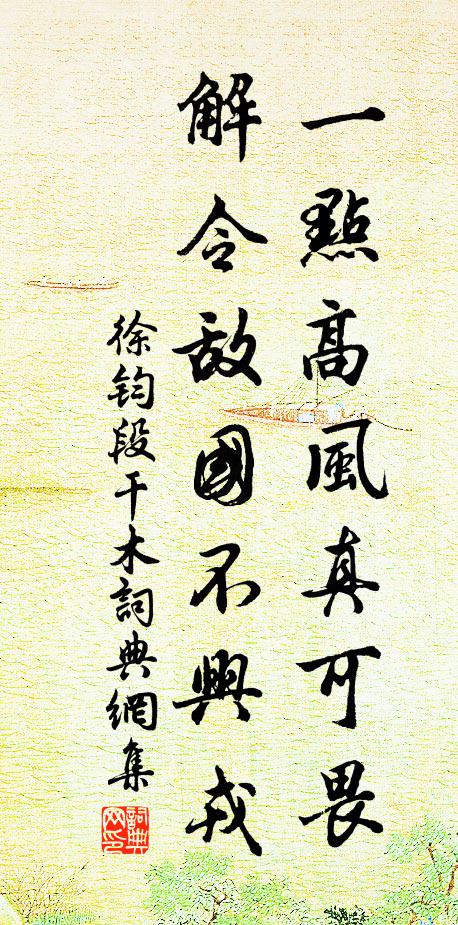 一點高風真可畏
解令敌國不興戎
徐鈞段干木詞典網集
詞典
网印